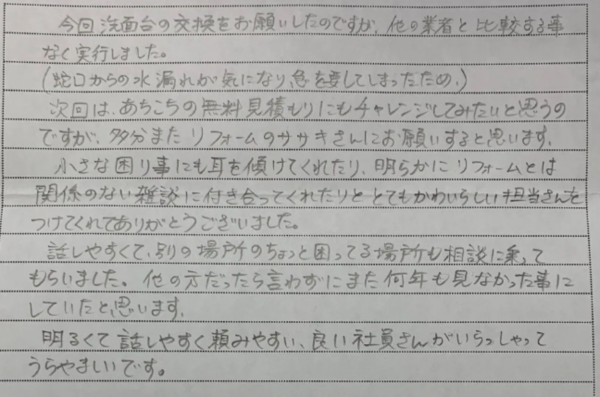 今回洗面台の交換をお願いしたのですが、他の業者と比較する事
なく実行しました。
(蛇口からの水漏れが気になり、急を要してしまったため。)
次回は、あちこちの無料見積もりにもチャレンジしてみたいと思うの
ですが、多分またリフォームのササキさんにお願いすると思います。
小さな困り事にも耳を傾けてくれたり、明らかにリフォームとは
関係のない雑談に付き合ってくれたりと とてもかわいらしい担当さんを
つけてくれてありがとうございました。
話しやすくて、別の場所のちょっと困ってる場所も相談に乗って
もらいました。他の方だったら言わずにまた何年も見なかった事に
していたと思います。
明るくて話しやすく頼みやすい、良い社員さんがいらっしゃって
うらやましいです。